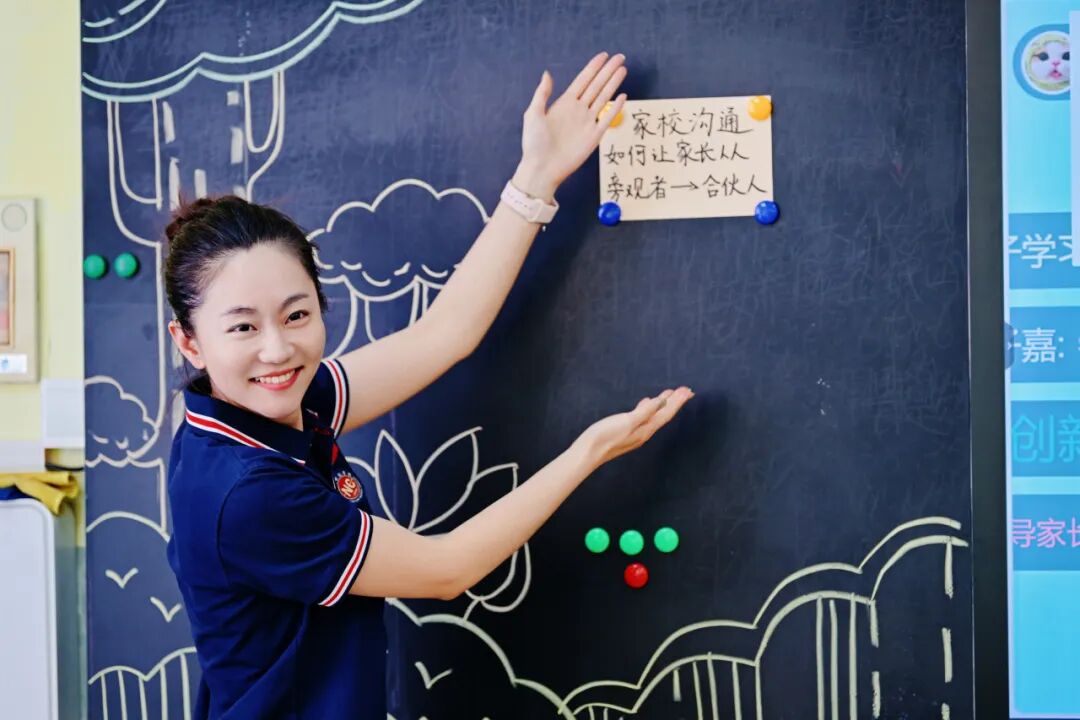 家校沟通
如何让家长从
旁观者→合伙人
NC
子学习
嘉:
创新
导家长